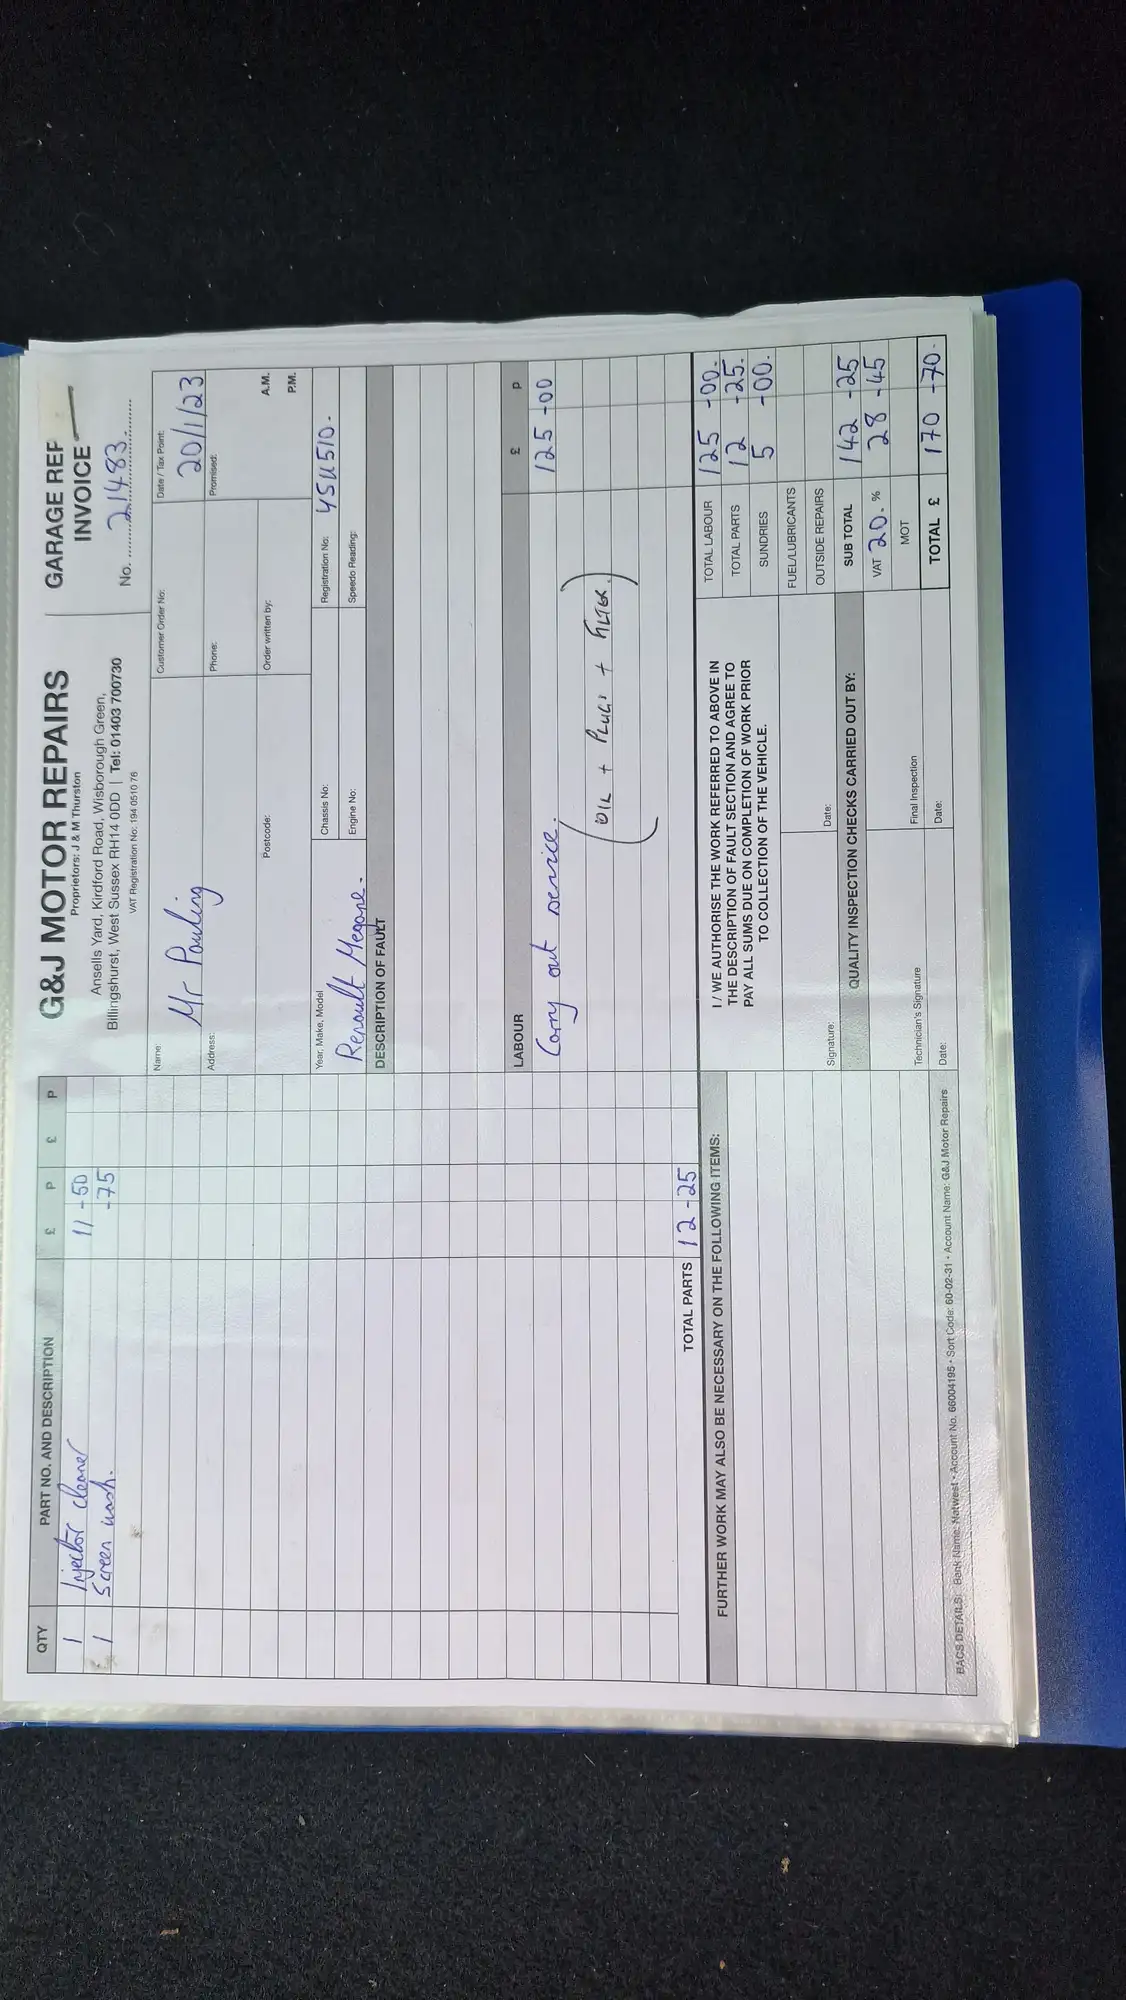 QTY PART NO. AND DESCRIPTION £ P £ P
1 Injector cleaner 11-50
1 Screen wash. -75
TOTAL PARTS 12-25
FURTHER WORK MAY ALSO BE NECESSARY ON THE FOLLOWING ITEMS:
G&J MOTOR REPAIRS
Proprietors: J & M Thurston
Ansells Yard, Kirdford Road, Wisborough Green,
Billingshurst, West Sussex RH14 0DD | Tel: 01403 700730
VAT Registration No: 194 0510 76
GARAGE REP
INVOICE
No. 21483.
Name: Mr Pauling
Customer Order No:
Date / Tax Point: 20/1/23
Address:
Phone:
Promised:
Postcode:
Order written by:
A.M.
P.M.
Year, Make, Model Renault Megane.
Chassis No:
Registration No: YSU510.
Engine No:
Speedo Reading:
DESCRIPTION OF FAULT
LABOUR £ P
Carry out service. 125-00
(OIL + PLUGS + FILTER.)
I / WE AUTHORISE THE WORK REFERRED TO ABOVE IN
THE DESCRIPTION OF FAULT SECTION AND AGREE TO
PAY ALL SUMS DUE ON COMPLETION OF WORK PRIOR
TO COLLECTION OF THE VEHICLE.
Signature: Date:
QUALITY INSPECTION CHECKS CARRIED OUT BY:
Technician's Signature Final Inspection
Date: Date:
TOTAL LABOUR 125-00.
TOTAL PARTS 12-25.
SUNDRIES 5-00.
FUEL/LUBRICANTS
OUTSIDE REPAIRS
SUB TOTAL 142-25
VAT 20. % 28-45
MOT
TOTAL £ 170-70.
BACS DETAILS: Bank Name: Natwest • Account No. 66004195 • Sort Code: 60-02-31 • Account Name: G&J Motor Repairs